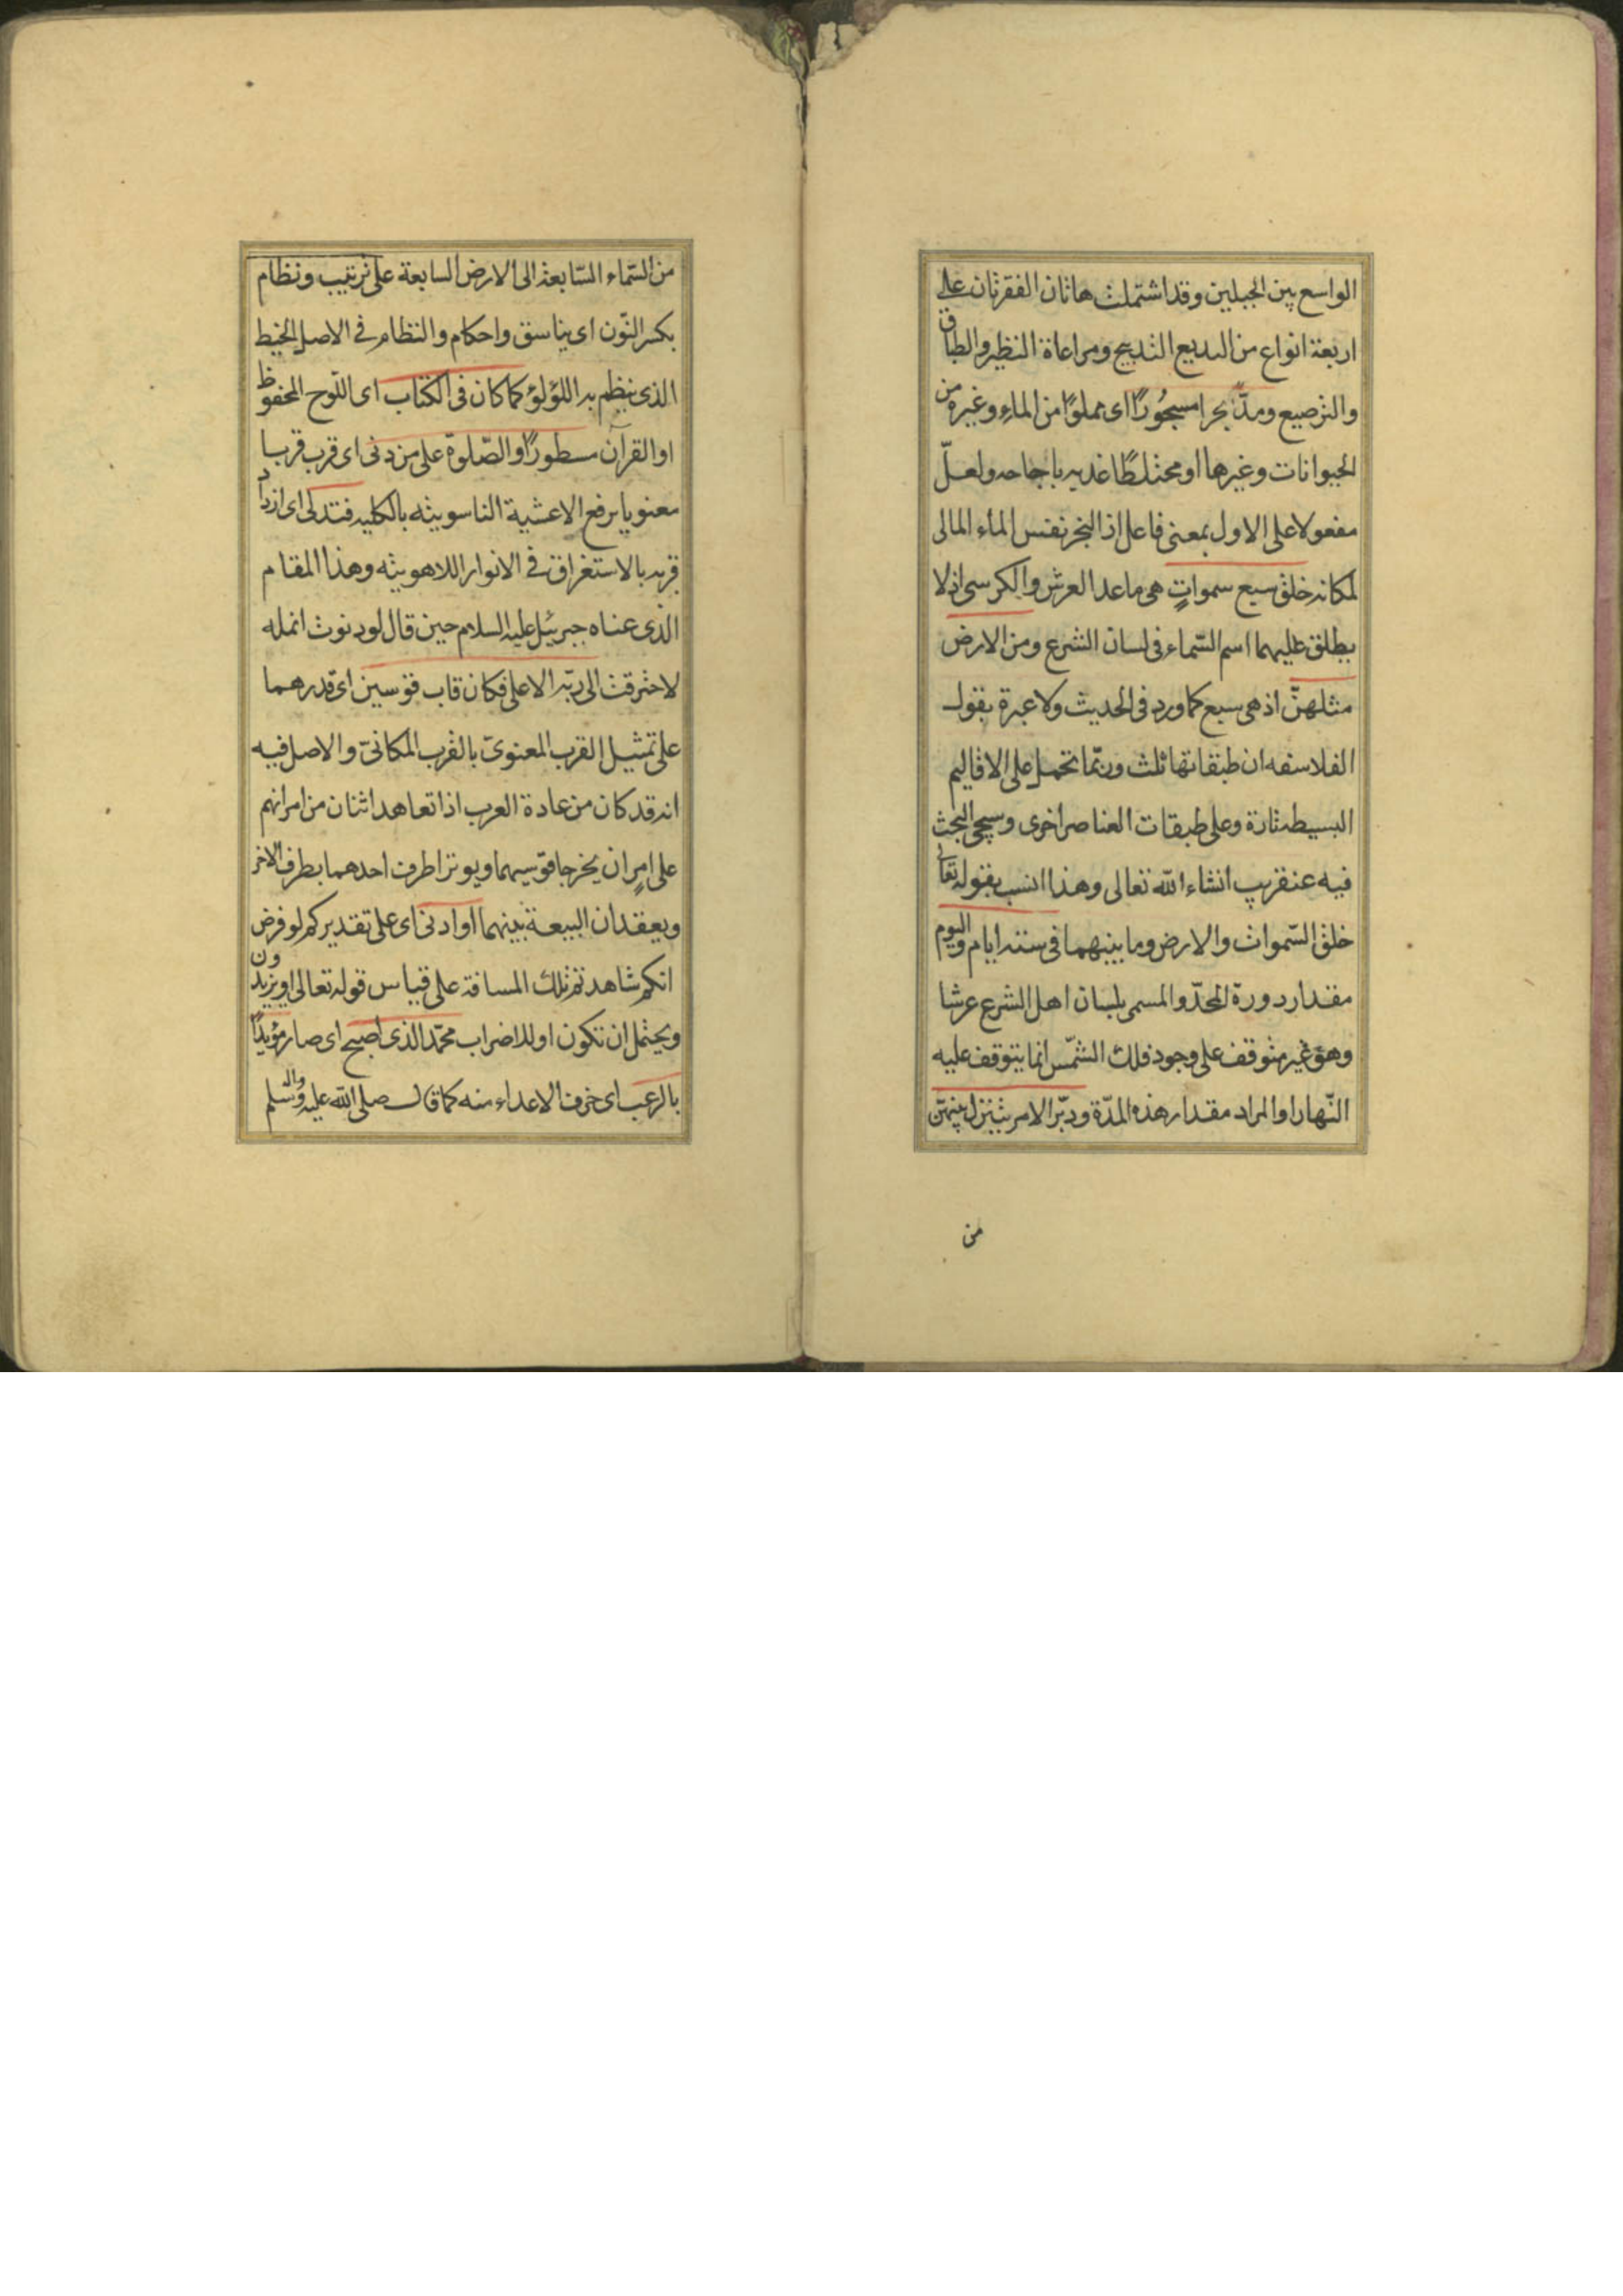 الواسع بين الجبلين وقد اشتملت هاتان الفقرتان على
اربعة انواع من البديع التدبيج ومراعاة النظير والطباق
والترصيع ومدّ بحرا مسجُورًا اى مملوًا من الماء وغيره من
الحيوانات وغيرها او مختلطًا غديره باجاجه ولعلّ
مفعولا على الاول بمعنى فاعل اذ البحر نفس الماء المالى
لمكانه خلق سبع سمواتٍ هى ما عدا العرش والكرسى اذ لا
يطلق عليهما اسم السّماء فى لسان الشرع ومن الارض
مثلهنّ اذ هى سبع كما ورد فى الحديث ولا عبرة بقول
الفلاسفه ان طبقاتها ثلث وربّما تحمل على الاقاليم
البسيطه تارة وعلى طبقات العناصر اخرى وسيجى البحث
فيه عنقريب انشاء الله تعالى وهذا انسب بقوله تعالى
خلق السّموات والارض وما بينهما فى ستة ايام واليوم
مقدار دورة المحدّد المسمى بلسان اهل الشرع عرشا
وهو غير متوقف على وجود فلك الشمّس انما يتوقف عليه
النّهار او المراد مقدار هذه المدّة ودبّر الامر يتنزل بينهنّ
من
من السّماء السّابعة الى الارض السابعة على ترتيب ونظام
بكسر النّون اى بناسق واحكام والنظام فى الاصل الخيط
الذى ينظم به اللؤلؤ كما كان فى الكتاب اى اللّوح المحفوظ
او القرآن مسطورًا والصّلوة على من دنى اى قرب قربا
معنويا برفع الاغشية الناسوتيه بالكليه فتدلى اى ازداد
قربه بالاستغراق فى الانوار اللاهوتيه وهذا المقام
الذى عناه جبرئيل عليه السلام حين قال لو دنوت انمله
لاحترقت الى ربّه الاعلى فكان قاب قوسين اى قدرهما
على تمثيل القرب المعنوىّ بالقرب المكانىّ والاصل فيه
انه قد كان من عادة العرب اذا تعاهد اثنان من امرائهم
على امرٍ ان يخرجا قوسيهما ويوترا طرف احدهما بطرف الاخر
ويعقدان البيعة بينهما او ادنى اى على تقديركم لو فرض
انكم شاهدتم تلك المسافة على قياس قوله تعالى او يزيدون
ويحتمل ان تكون او للاضراب محمّد الذى اصبح اى صار مؤيدًا
بالرعب اى خوف الاعداء منه كما قال صلى الله عليه واله وسلم